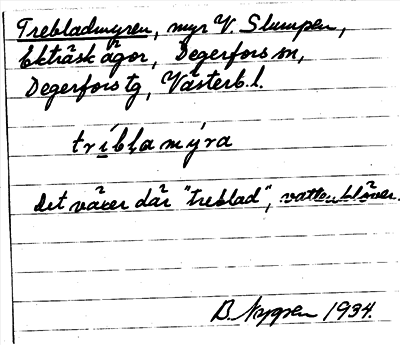 Trebladmyren, myr V. Slumpen,
Ekträsk ägor, Degerfors sn,
Degerfors tg, Västerb. l.
trí̱blamýra
Det växer där "treblad", vattenklöver.
B. Nygren 1934.